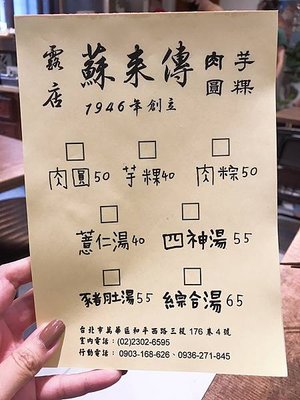 露店 蘇来傳 肉圓 芋粿
1946年創立
肉圓50 芋粿40 肉粽50
薏仁湯40 四神湯55
豬肚湯55 綜合湯65
台北市萬華區和平西路三段176巷4號
室內電話：(02)2302-6595
行動電話：0903-168-626、0936-271-845